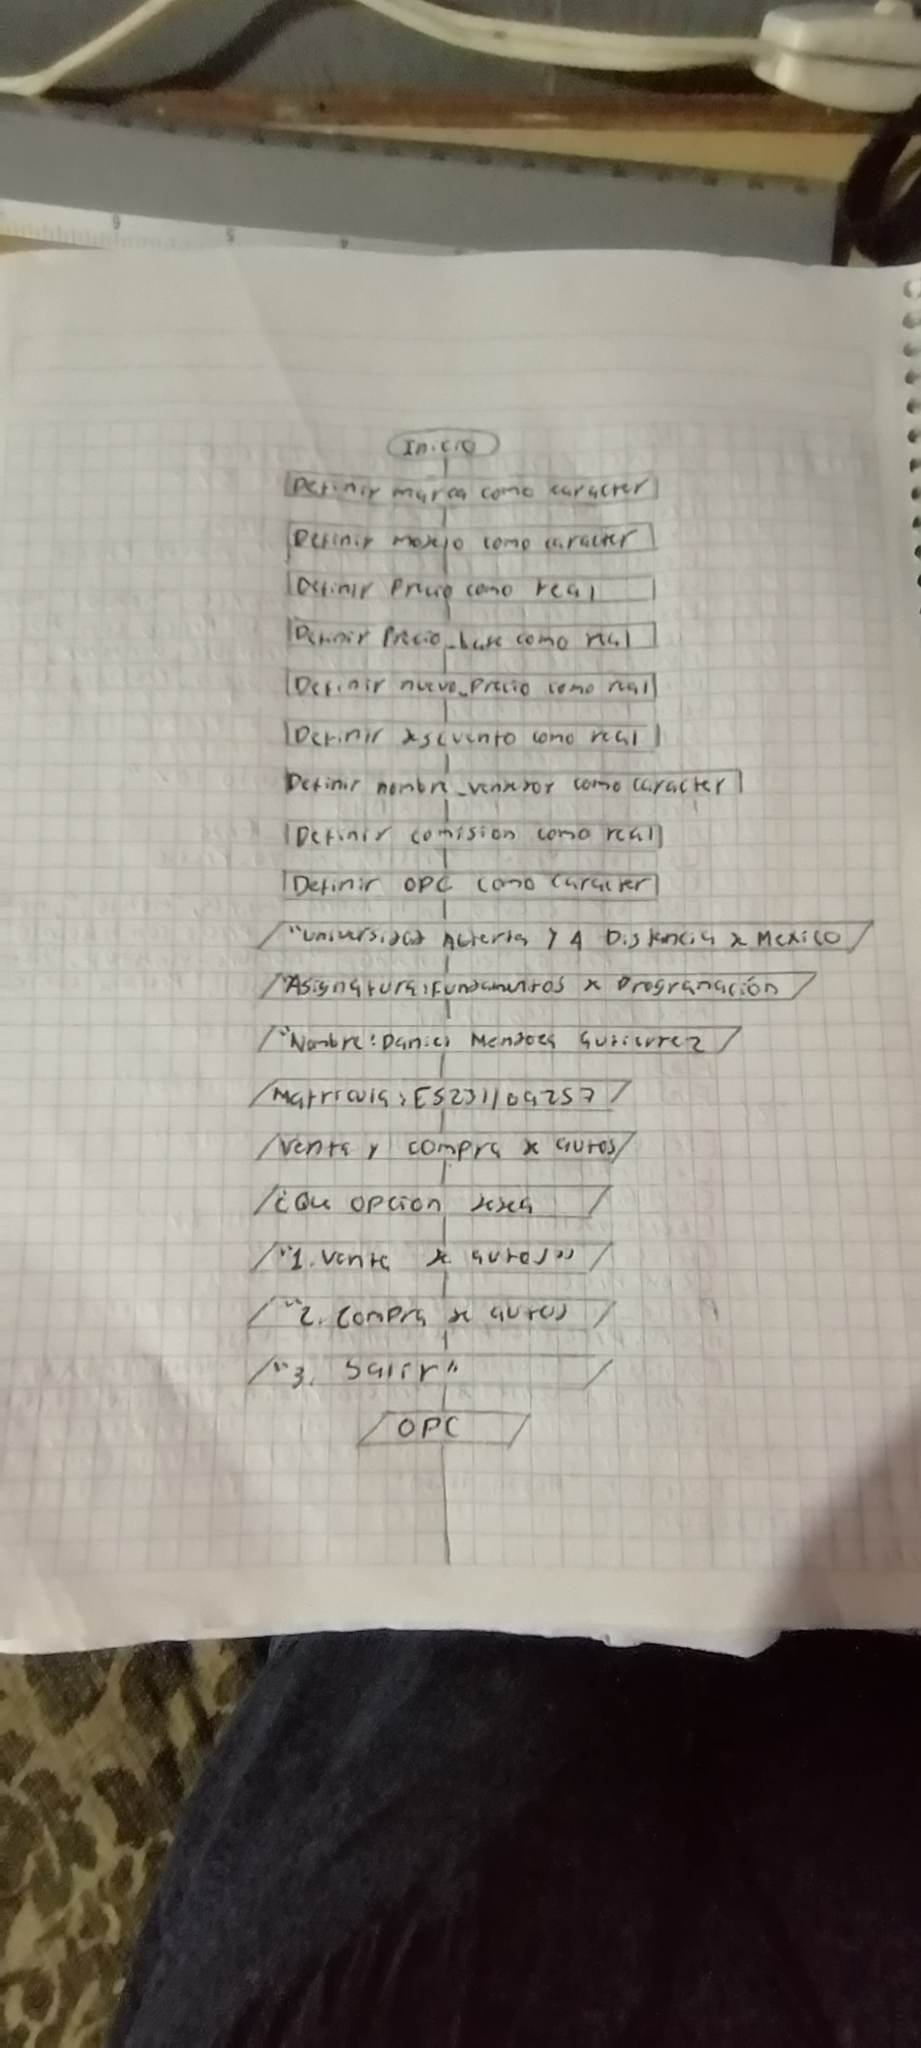 Inicio
Definir marca como caracter
Definir modelo como caracter
Definir Precio como real
Definir Precio_base como real
Definir nuevo_Precio como real
Definir descuento como real
Definir nombre_vendedor como caracter
Definir comision como real
Definir OPC como caracter
"Universidad Abierta Y A Distancia de Mexico
"Asignatura: Fundamentos de Programación
"Nombre: Daniel Mendoza Gutierrez
Matricula: ES231109257
Venta y compra de autos
¿Que opcion desea
"1. Venta de autos"
"2. Compra de autos
"3. Salir"
OPC